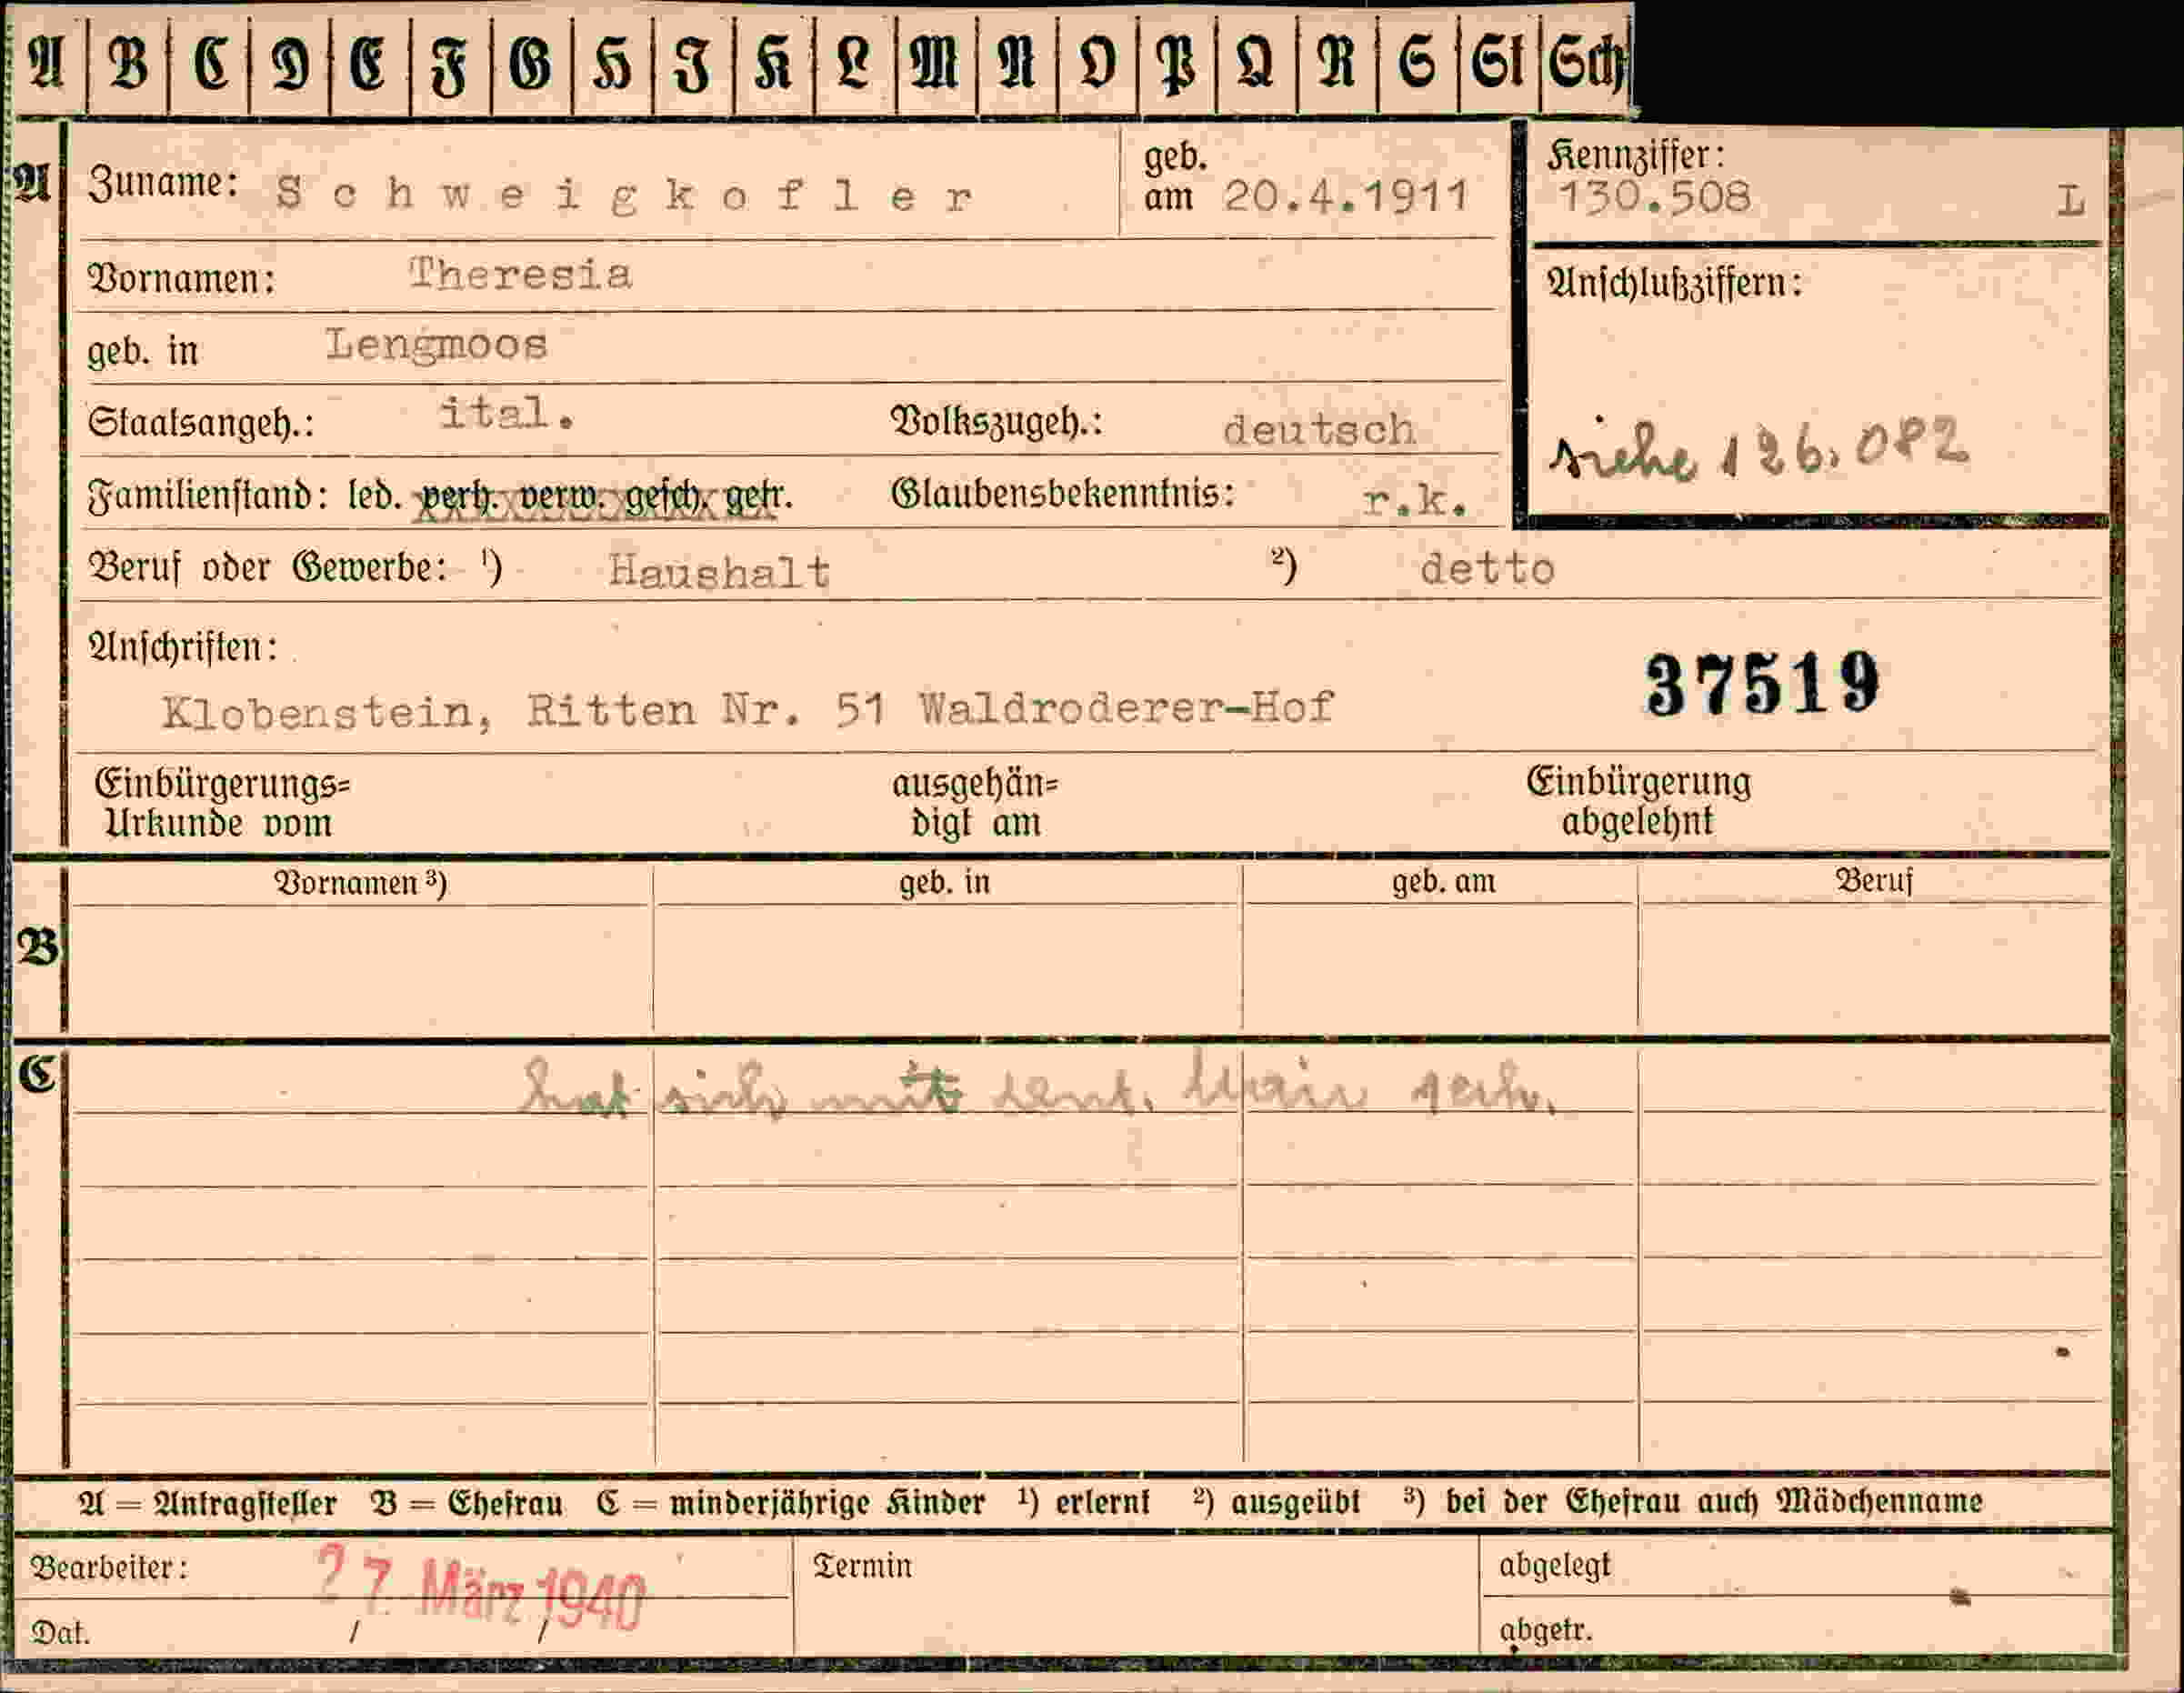 A B C D E F G H I K L M N O P Q R S St Sch
A
Zuname: Schweigkofler
geb. am 20.4.1911
Kennziffer: 130.508 L
Vornamen: Theresia
Anschlußziffern:
geb. in Lengmoos
Staatsangeh.: ital. Volkszugeh.: deutsch
siehe 126.082
Familienstand: led. verh. verw. gesch. getr. Glaubensbekenntnis: r.k.
Beruf oder Gewerbe: ¹) Haushalt ²) detto
Anschriften:
37519
Klobenstein, Ritten Nr. 51 Waldroderer-Hof
Einbürgerungs= ausgehän= Einbürgerung
Urkunde vom digt am abgelehnt
Vornamen ³) geb. in geb. am Beruf
B
C
hat sich mit Mair verh.
A = Antragsteller B = Ehefrau C = minderjährige Kinder ¹) erlernt ²) ausgeübt ³) bei der Ehefrau auch Mädchenname
Bearbeiter: 27. März 1940 Termin abgelegt
Dat. / / abgetr.